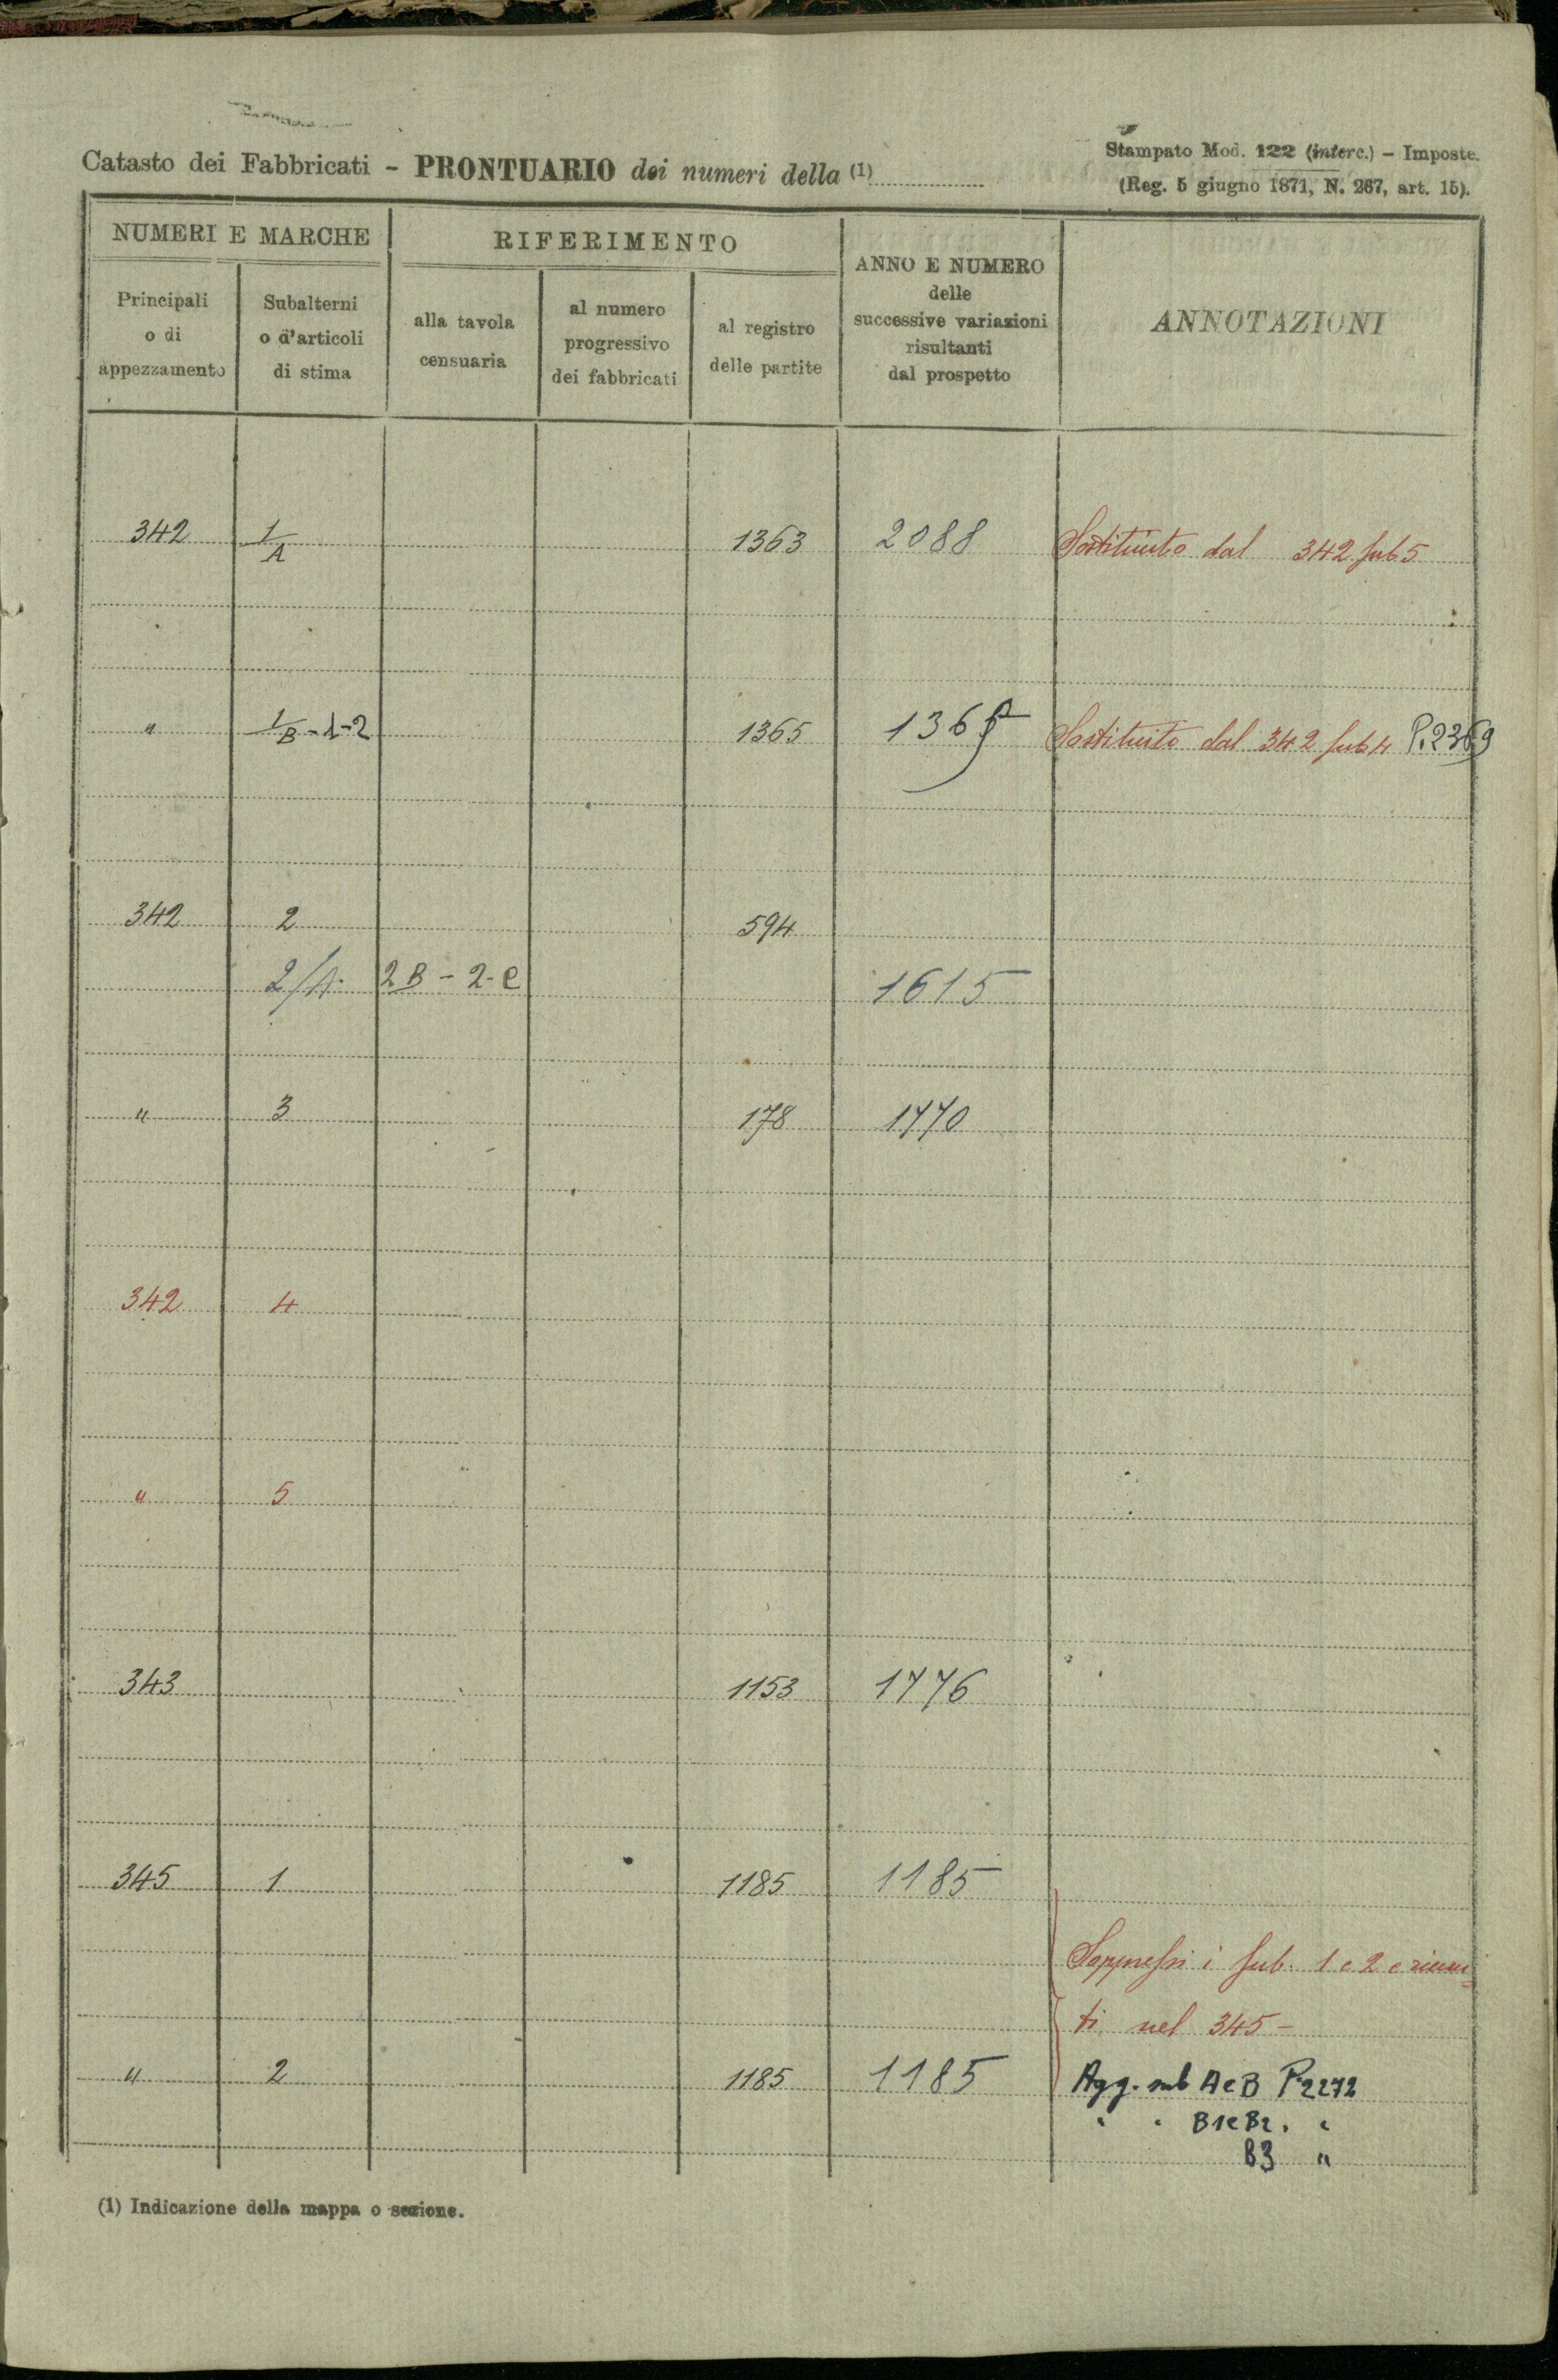 Catasto dei Fabbricati - PRONTUARIO dei numeri della (1)
Stampato Mod. 122 (interc.) - Imposte.
(Reg. 5 giugno 1871, N. 267, art. 15).
NUMERI E MARCHE
RIFERIMENTO
ANNO E NUMERO
delle
successive variazioni
risultanti
dal prospetto
ANNOTAZIONI
Principali
o di
appezzamento
Subalterni
o d'articoli
di stima
alla tavola
censuaria
al numero
progressivo
dei fabbricati
al registro
delle partite
342 1/A 1363 2088 Sostituito dal 342 sub 5
" 1/B-1-2 1365 1365 Sostituito dal 342 sub 4 P.2369
342 2 594
2/A- 2B - 2-C 1615
" 3 178 1770
342 4
" 5
343 1153 1776
345 1 1185 1185
Soppressi i sub. 1 e 2 e riuni=
ti nel 345 -
" 2 1185 1185 Agg. sub A e B P.2272
" " B1 e B2. "
B3 "
(1) Indicazione della mappa o sezione.